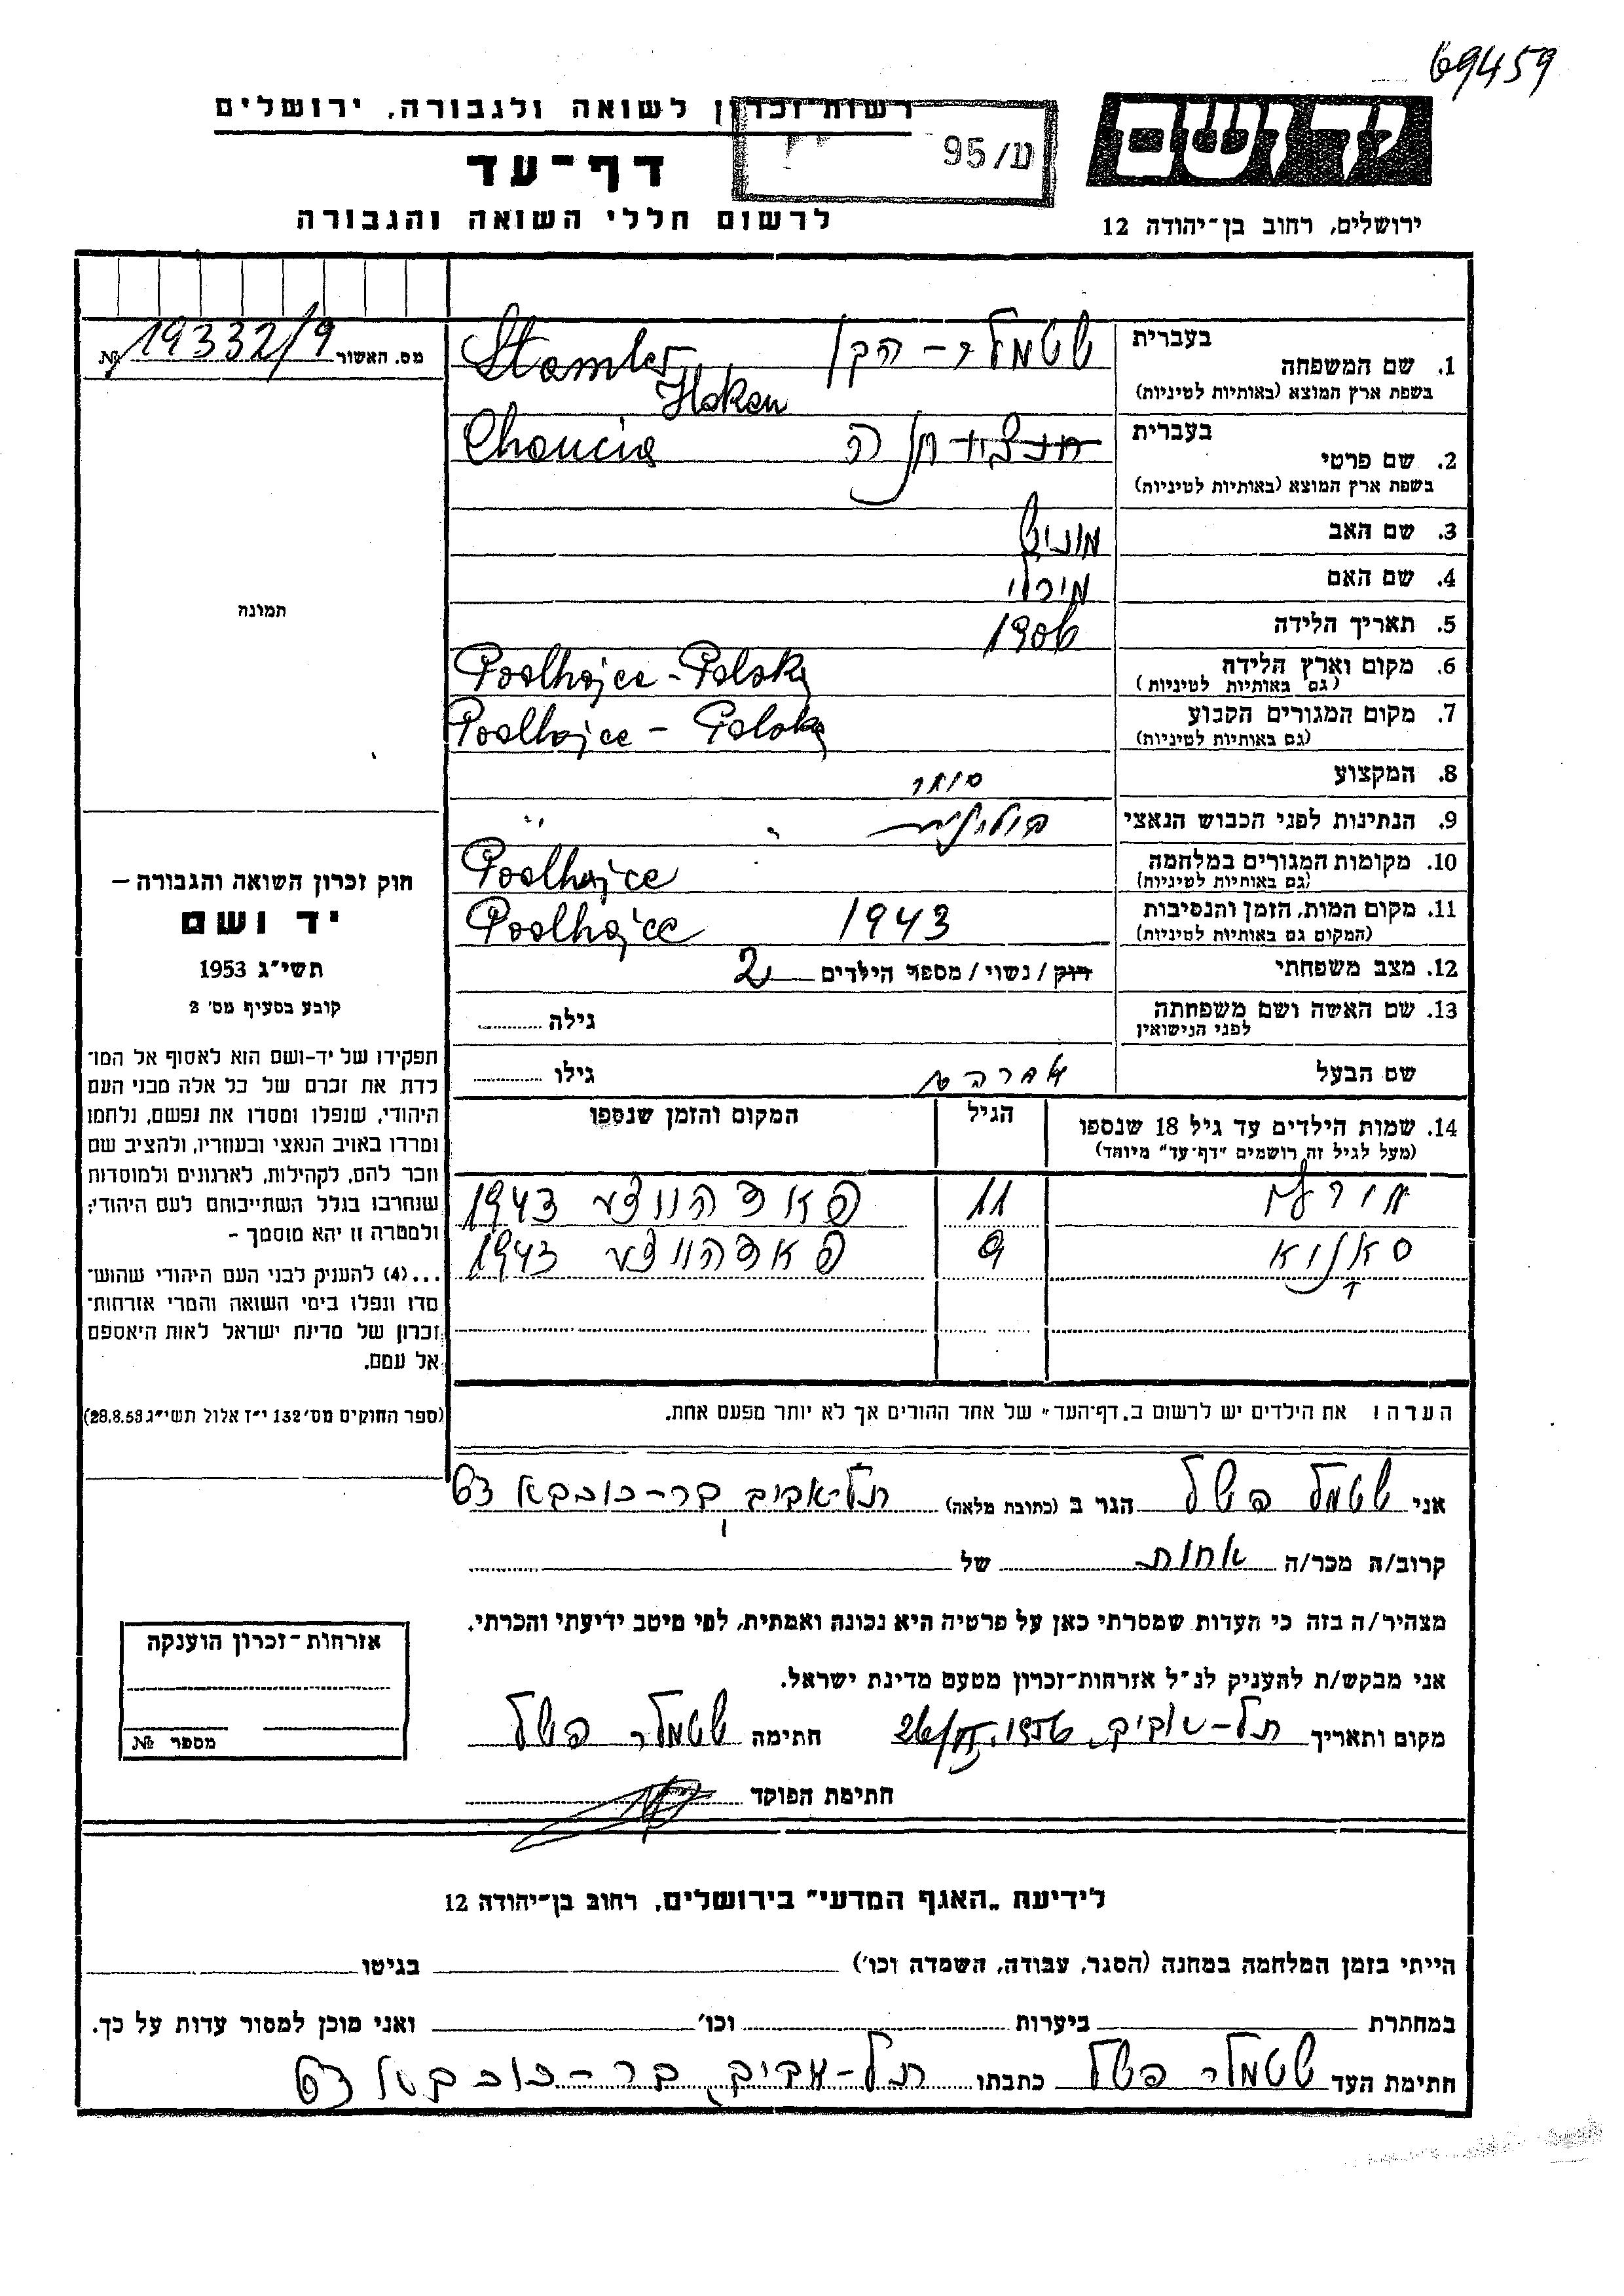 69459
רשות-זכרון לשואה ולגבורה, ירושלים
ע/95
יד ושם
דף-עד
לרשום חללי השואה והגבורה
ירושלים, רחוב בן-יהודה 12
מס. האשור № 19332/9
בעברית
שטמלר - הקן
1. שם המשפחה
Stamler
בשפת ארץ המוצא (באותיות לטיניות)
Haken
בעברית
2. שם פרטי
Chancia
בשפת ארץ המוצא (באותיות לטיניות)
3. שם האב
4. שם האם
5. תאריך הלידה 1906
6. מקום וארץ הלידה Podhajce - Polska
(גם באותיות לטיניות)
7. מקום המגורים הקבוע Podhajce - Polska
(גם באותיות לטיניות)
8. המקצוע סוחר
9. הנתינות לפני הכבוש הנאצי פולנית
10. מקומות המגורים במלחמה Podhajce
(גם באותיות לטיניות)
11. מקום המות, הזמן והנסיבות 1943 Podhajce
(המקום גם באותיות לטיניות)
12. מצב משפחתי רוק / נשוי / מספר הילדים 2
13. שם האשה ושם משפחתה גילה
לפני הנישואין
שם הבעל אברהם גילו
14. שמות הילדים עד גיל 18 שנספו הגיל המקום והזמן שנספו
(מעל לגיל זה רושמים "דף-עד" מיוחד)
11 פאדהייצע 1943
9 פאדהייצע 1943
הערה: את הילדים יש לרשום ב"דף-העד" של אחד ההורים אך לא יותר מפעם אחת.
תמונה
חוק זכרון השואה והגבורה –
יד ושם
תשי"ג 1953
קובע בסעיף מס' 2
תפקידו של יד-ושם הוא לאסוף אל המו־
לדת את זכרם של כל אלה מבני העם
היהודי, שנפלו ומסרו את נפשם, נלחמו
ומרדו באויב הנאצי ובעוזריו, ולהציב שם
וזכר להם, לקהילות, לארגונים ולמוסדות
שנחרבו בגלל השתייכותם לעם היהודי;
ולמטרה זו יהא מוסמך –
...(4) להעניק לבני העם היהודי שהוש־
מדו ונפלו בימי השואה והמרי אזרחות־
זכרון של מדינת ישראל לאות היאספם
אל עמם.
(ספר החוקים מס' 132 י"ז אלול תשי"ג 28.8.53)
אני שטמלר הגר ב (כתובת מלאה) תל-אביב בר-כוכבא 63
קרוב/ה מכר/ה אחות של
מצהיר/ה בזה כי העדות שמסרתי כאן על פרטיה היא נכונה ואמתית, לפי מיטב ידיעתי והכרתי.
אני מבקש/ת להעניק לנ"ל אזרחות-זכרון מטעם מדינת ישראל.
מקום ותאריך תל-אביב, 1956 חתימה שטמלר
חתימת הפוקד
אזרחות-זכרון הוענקה
מספר №
לידיעת "האגף המדעי" בירושלים, רחוב בן-יהודה 12
הייתי בזמן המלחמה במחנה (הסגר, עבודה, השמדה וכו') בגיטו
במחתרת ביערות וכו' ואני מוכן למסור עדות על כך.
חתימת העד שטמלר כתבתו תל-אביב, בר-כוכבא 63